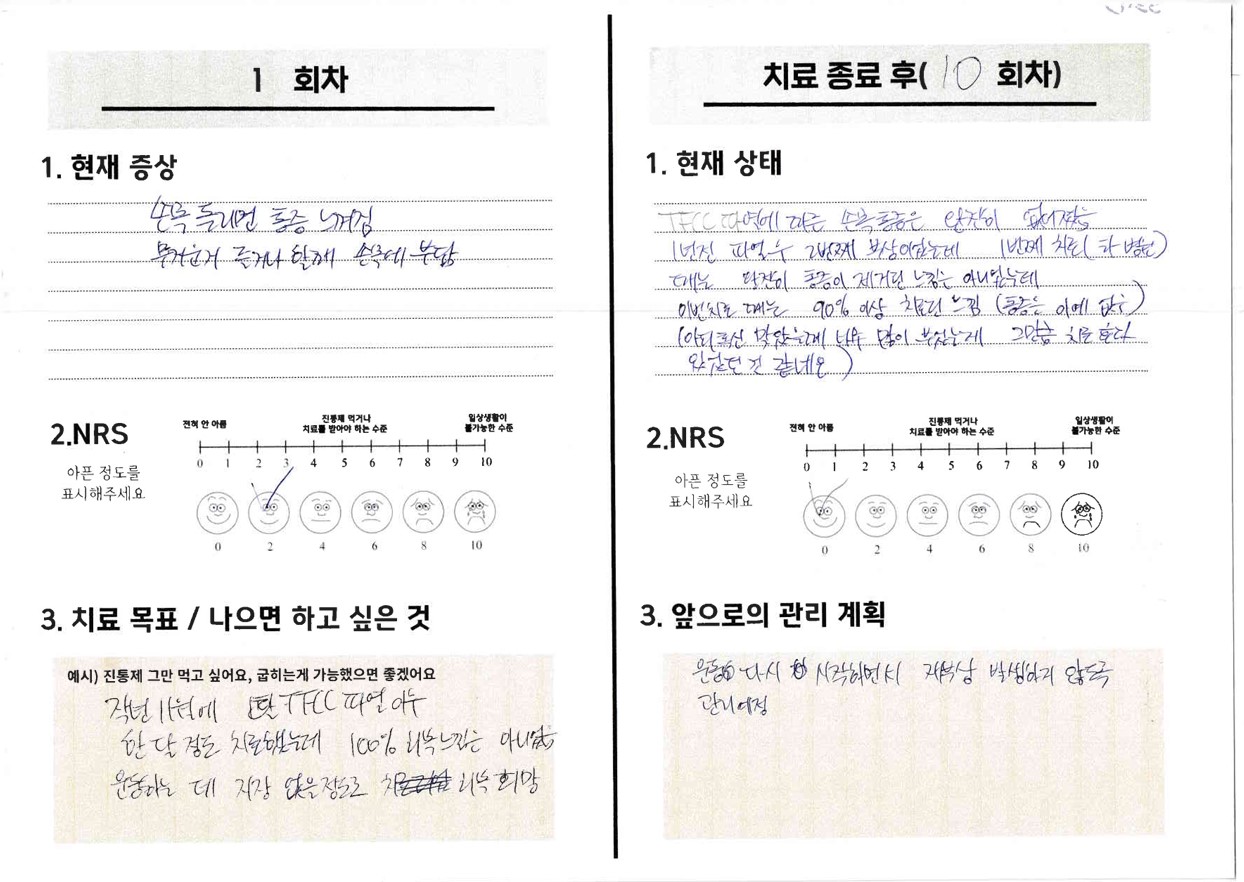 1 회차
1. 현재 증상
손목 돌리면 통증 느껴짐
무거운거 들거나 할때 손목에 부담
2.NRS
아픈 정도를
표시해주세요
전혀 안 아픔
진통제 먹거나
치료를 받아야 하는 수준
일상생활이
불가능한 수준
0 1 2 3 4 5 6 7 8 9 10
0 2 4 6 8 10
3. 치료 목표 / 나으면 하고 싶은 것
예시) 진통제 그만 먹고 싶어요, 굽히는게 가능했으면 좋겠어요
작년 11월에 TFCC 파열 이후
한 달 정도 치료했는데 100% 회복느낌은 아니었음
운동하는 데 지장 없을정도로 회복 희망
치료 종료 후( 10 회차)
1. 현재 상태
TFCC 파열에 따른 손목통증은 완전히 없어졌음
1번진 파열후 2번째 부상이었는데 1번째 치료(타 병원)
때는 완전히 통증이 제거된 느낌은 아니었는데
이번치료 때는 90% 이상 치료된 느낌 (통증은 이에 없구)
맞았을때 너무 많이 부었는데 그만큼 치료 효과
있었던 것 같네요)
2.NRS
아픈 정도를
표시해주세요
전혀 안 아픔
진통제 먹거나
치료를 받아야 하는 수준
일상생활이
불가능한 수준
0 1 2 3 4 5 6 7 8 9 10
0 2 4 6 8 10
3. 앞으로의 관리 계획
운동 다시 시작하면서 재부상 발생하지 않도록
관리예정